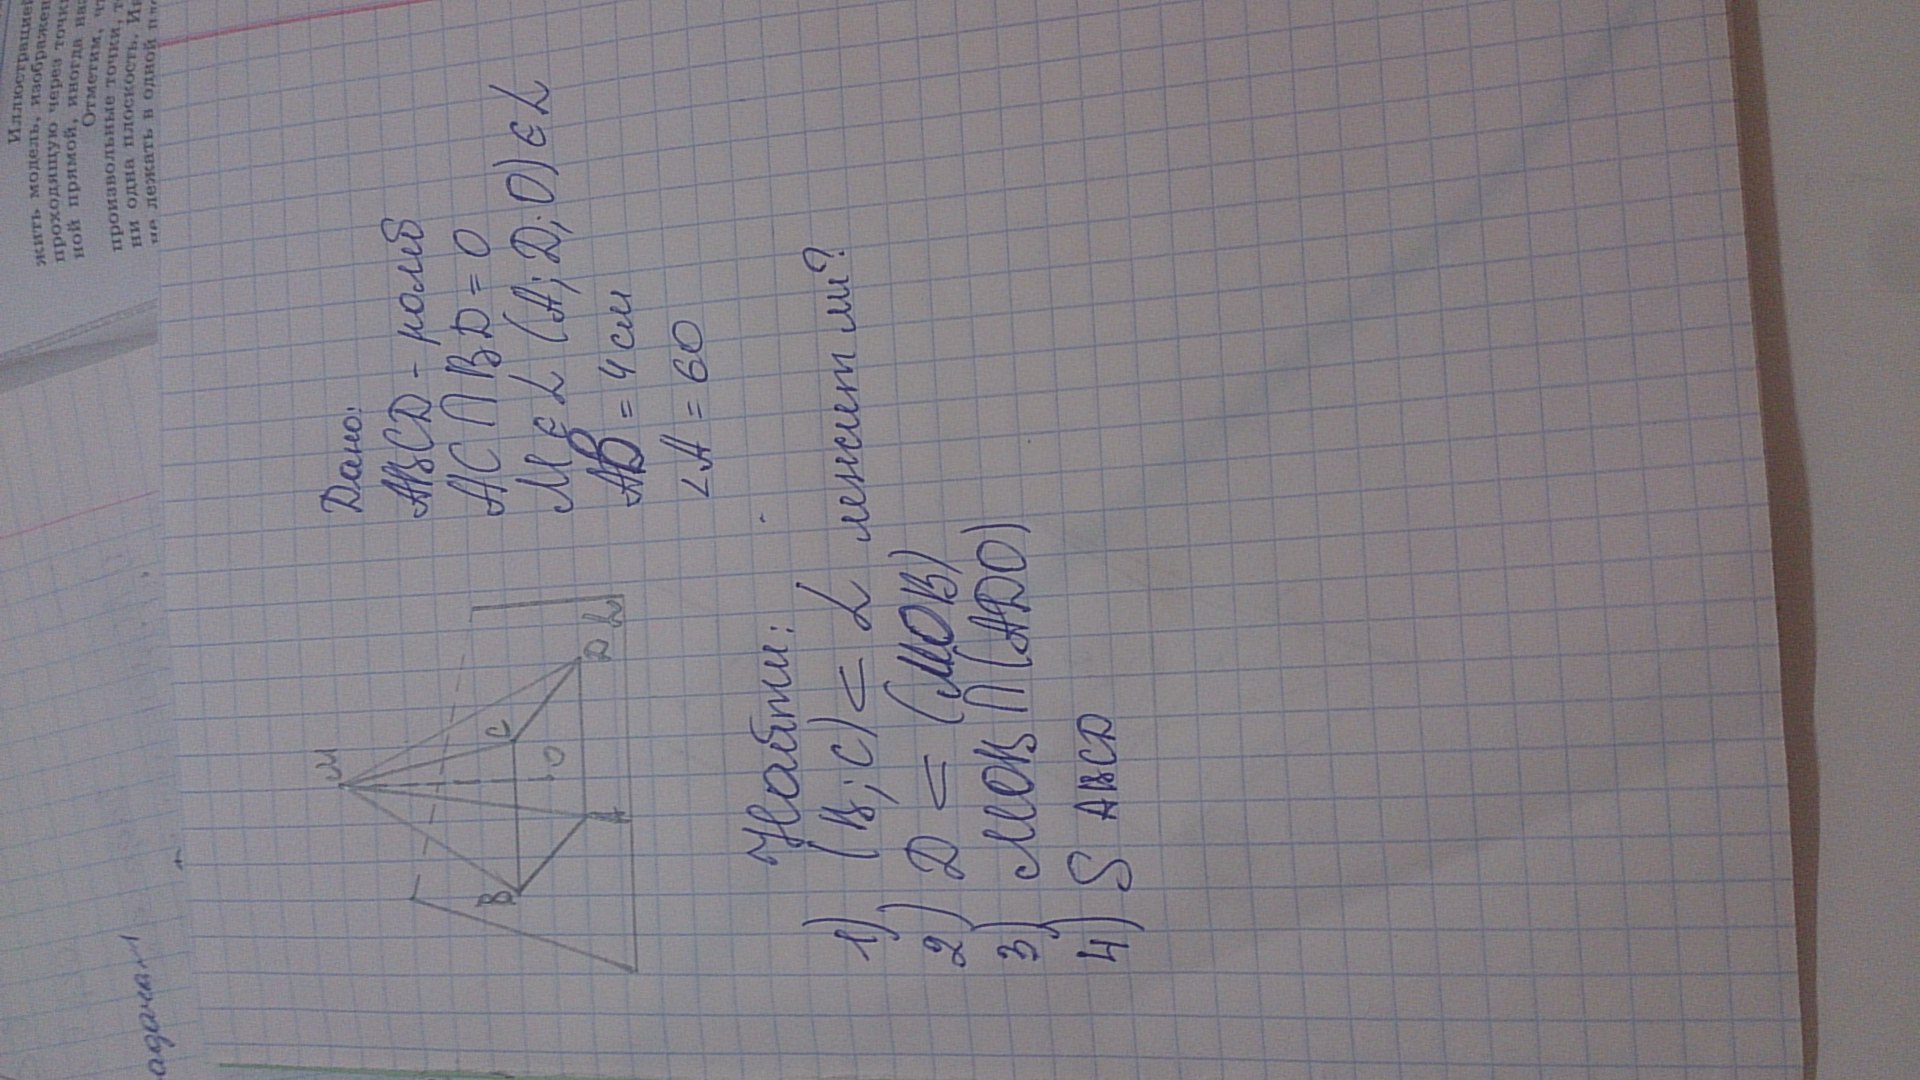 Иллюстрацией
жить модель, изображен
проходящую через точки
ной прямой, иногда на
Отметим, ч
произвольные точки, т
ни одна плоскость. И
не лежать в одной п
M
B
C
O
A
D
L
Дано:
ABCD - ромб
AC ∩ BD = O
M ∈ L (A; D; O) ∈ L
AB = 4 см
∠A = 60
Найти:
1) (B; C) ⊂ L лежит ли?
2) D ⊂ (MOB)
3) MOB ∩ (ADO)
4) S ABCD